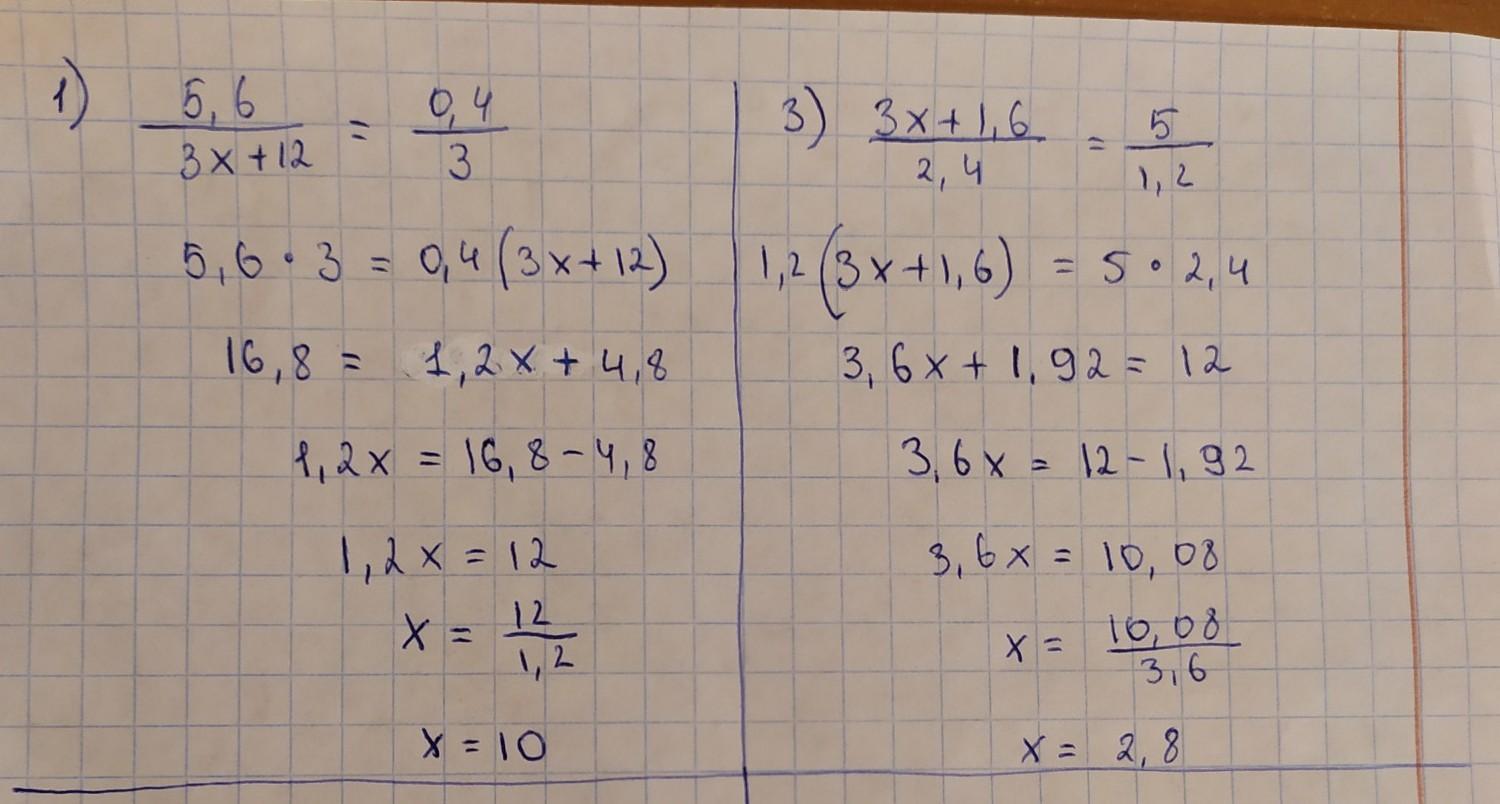 1) 5,6 / 3x+12 = 0,4 / 3
5,6 · 3 = 0,4(3x+12)
16,8 = 1,2x + 4,8
1,2x = 16,8 - 4,8
1,2x = 12
x = 12 / 1,2
x = 10
3) 3x+1,6 / 2,4 = 5 / 1,2
1,2(3x+1,6) = 5 · 2,4
3,6x + 1,92 = 12
3,6x = 12 - 1,92
3,6x = 10,08
x = 10,08 / 3,6
x = 2,8